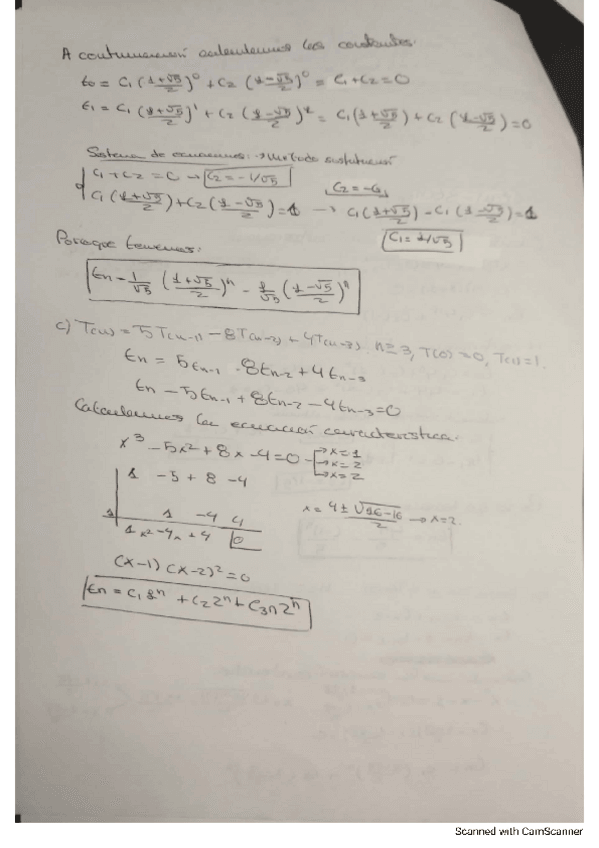 A continuación calculamos las constantes:
t₀ = C₁ ((1+√5)/2)⁰ + C₂ ((1-√5)/2)⁰ = C₁ + C₂ = 0
t₁ = C₁ ((1+√5)/2)¹ + C₂ ((1-√5)/2)¹ = C₁ ((1+√5)/2) + C₂ ((1-√5)/2) = 0
Sistema de ecuaciones: → Método sustitución
C₁ + C₂ = 0 → C₂ = -1/√5
C₂ = -C₁
C₁ ((1+√5)/2) + C₂ ((1-√5)/2) = 1 → C₁ ((1+√5)/2) - C₁ ((1-√5)/2) = 1
C₁ = 1/√5
Por lo que tenemos:
tn = 1/√5 ((1+√5)/2)ⁿ - 1/√5 ((1-√5)/2)ⁿ
c) T(n) = 5T(n-1) - 8T(n-2) + 4T(n-3) n≥3, T(0)=0, T(1)=1.
tn = 5tn-1 - 8tn-2 + 4tn-3
tn - 5tn-1 + 8tn-2 - 4tn-3 = 0
Calculamos la ecuación característica.
x³ - 5x² + 8x - 4 = 0 → x=1 → x=2 → x=2
1 -5 +8 -4
1 1 -4 4
1x² -4x +4 0
x = (4 ± √(16-16))/2 → x=2.
(x-1) (x-2)² = 0
tn = C₁ 1ⁿ + C₂ 2ⁿ + C₃ n 2ⁿ
Scanned with CamScanner